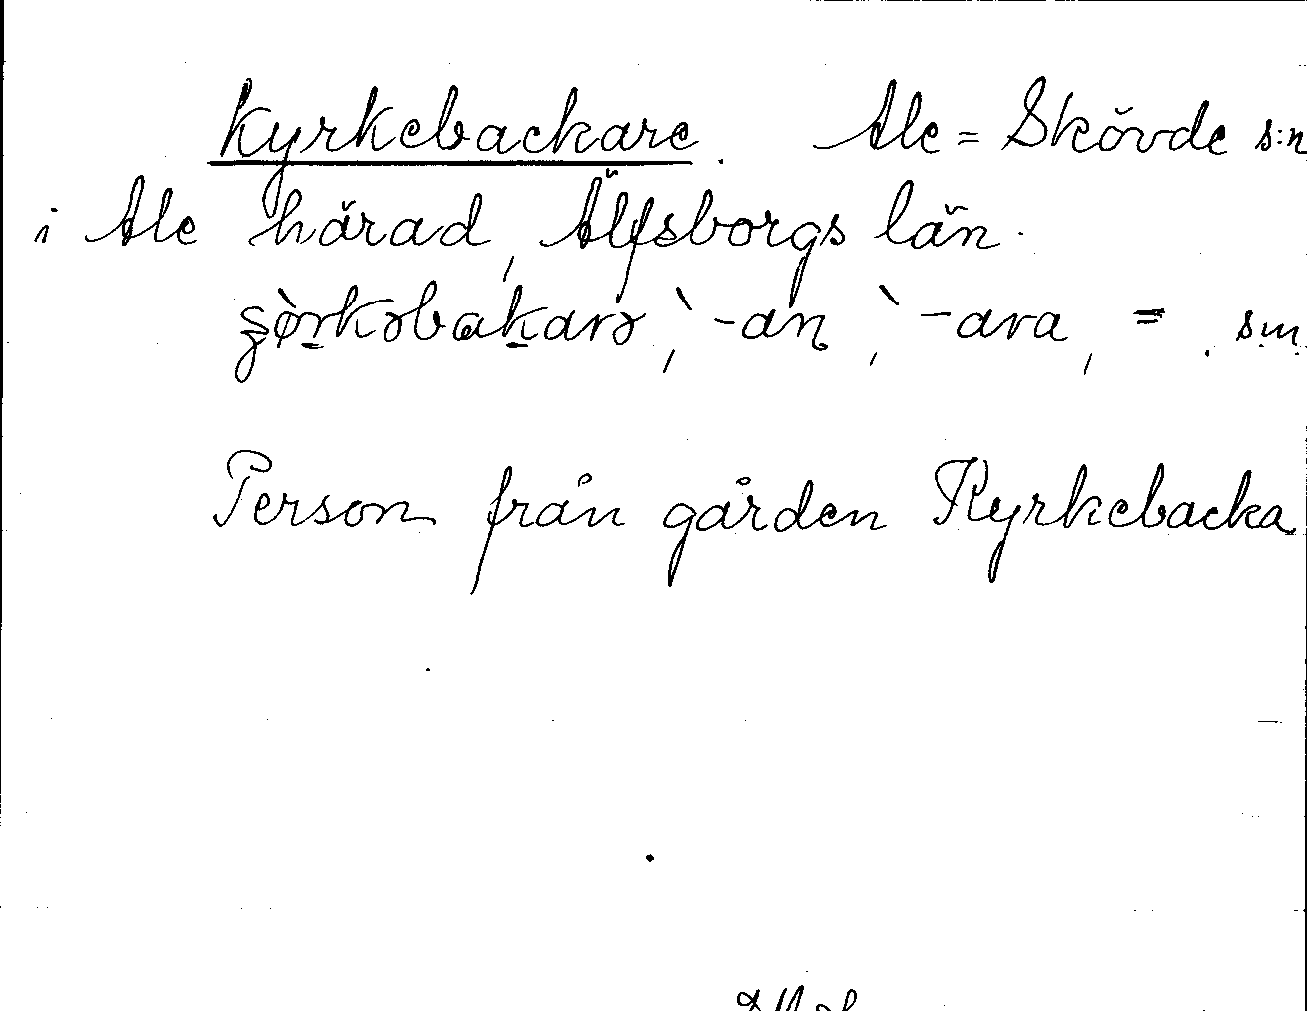 kyrkebackare. Ale=Skövde s:n
i Ale härad, Älfsborgs län.
-an, -ara, =. s.m.
Person från gården Kyrkebacka